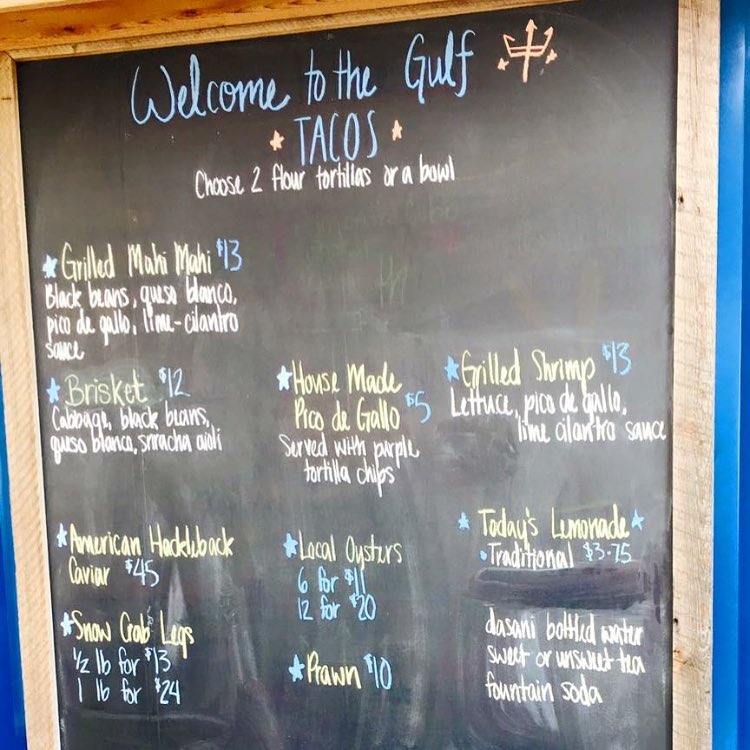 Welcome to the Gulf
TACOS
Choose 2 flour tortillas or a bowl
Grilled Mahi Mahi $13
Black beans, queso blanco,
pico de gallo, lime-cilantro
sauce
Brisket $12
Cabbage, black beans,
queso blanco, sriracha aioli
House Made
Pico de Gallo $5
Served with purple
tortilla chips
Grilled Shrimp $13
Lettuce, pico de gallo,
lime cilantro sauce
American Hackleback
Caviar $45
Snow Crab Legs
1/2 lb for $13
1 lb for $24
Local Oysters
6 for $11
12 for $20
Prawn $10
Today's Lemonade
Traditional $3.75
dasani bottled water
sweet or unsweet tea
fountain soda